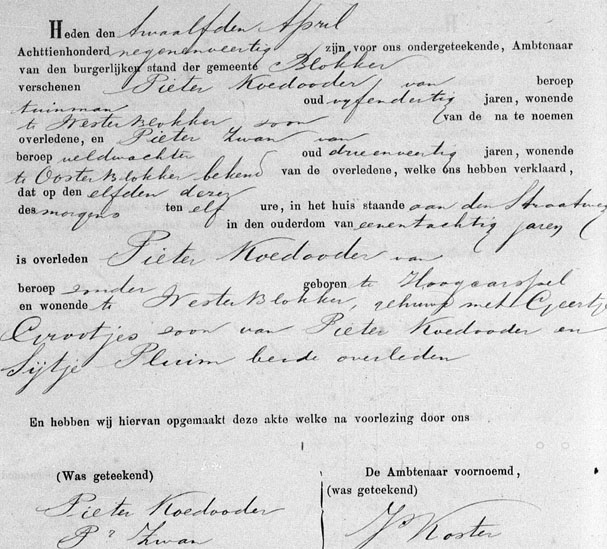 Heden den twaalfden April
Achttienhonderd negenenveertig zijn voor ons ondergeteekende, Ambtenaar
van den burgerlijken stand der gemeente Blokker
verschenen Pieter Koedooder van beroep
tuinman oud vyfendertig jaren, wonende
te WesterBlokker soon van de na te noemen
overledene, en Pieter Zwan van
beroep veldwachter oud drieenveertig jaren, wonende
te OosterBlokker bekend van de overledene, welke ons hebben verklaard,
dat op den elfden dezer
des morgens ten elf ure, in het huis staande aan den Straatweg
in den ouderdom van eenentachtig jaren
is overleden Pieter Koedooder van
beroep zonder geboren te Hoogkarspel
en wonende te WesterBlokker, gehuwd met Geertje
Grootjes soon van Pieter Koedooder en
Sijtje Pluim beide overleden
En hebben wij hiervan opgemaakt deze akte welke na voorlezing door ons
(Was geteekend) De Ambtenaar voornoemd,
(was geteekend)
Pieter Koedooder
Pr Zwan Js Koster